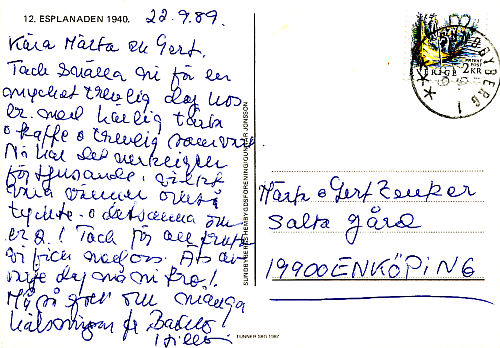 12. ESPLANADEN 1940.
22.9.89.
Kära Märta o Gert.
Tack snälla ni för en
mycket trevlig dag hos
er. med härlig tårta
o kaffe o trevlig samvaro
Ni har det verkligen
förtjusande, vilket
våra vänner också
tyckte. o detsamma om
er 2! Tack för all frukt
vi fick med oss. Äts av
varje dag må ni tro!
Må så gott om många
hälsningar fr
SUNDBYBERGS HEMBYGDSFÖRENING/GUNNAR JONSSON
SUNDBYBERG 1
SVERIGE 2 KR
Märta o Gert Zenker
Salta gård
19900 ENKÖPING